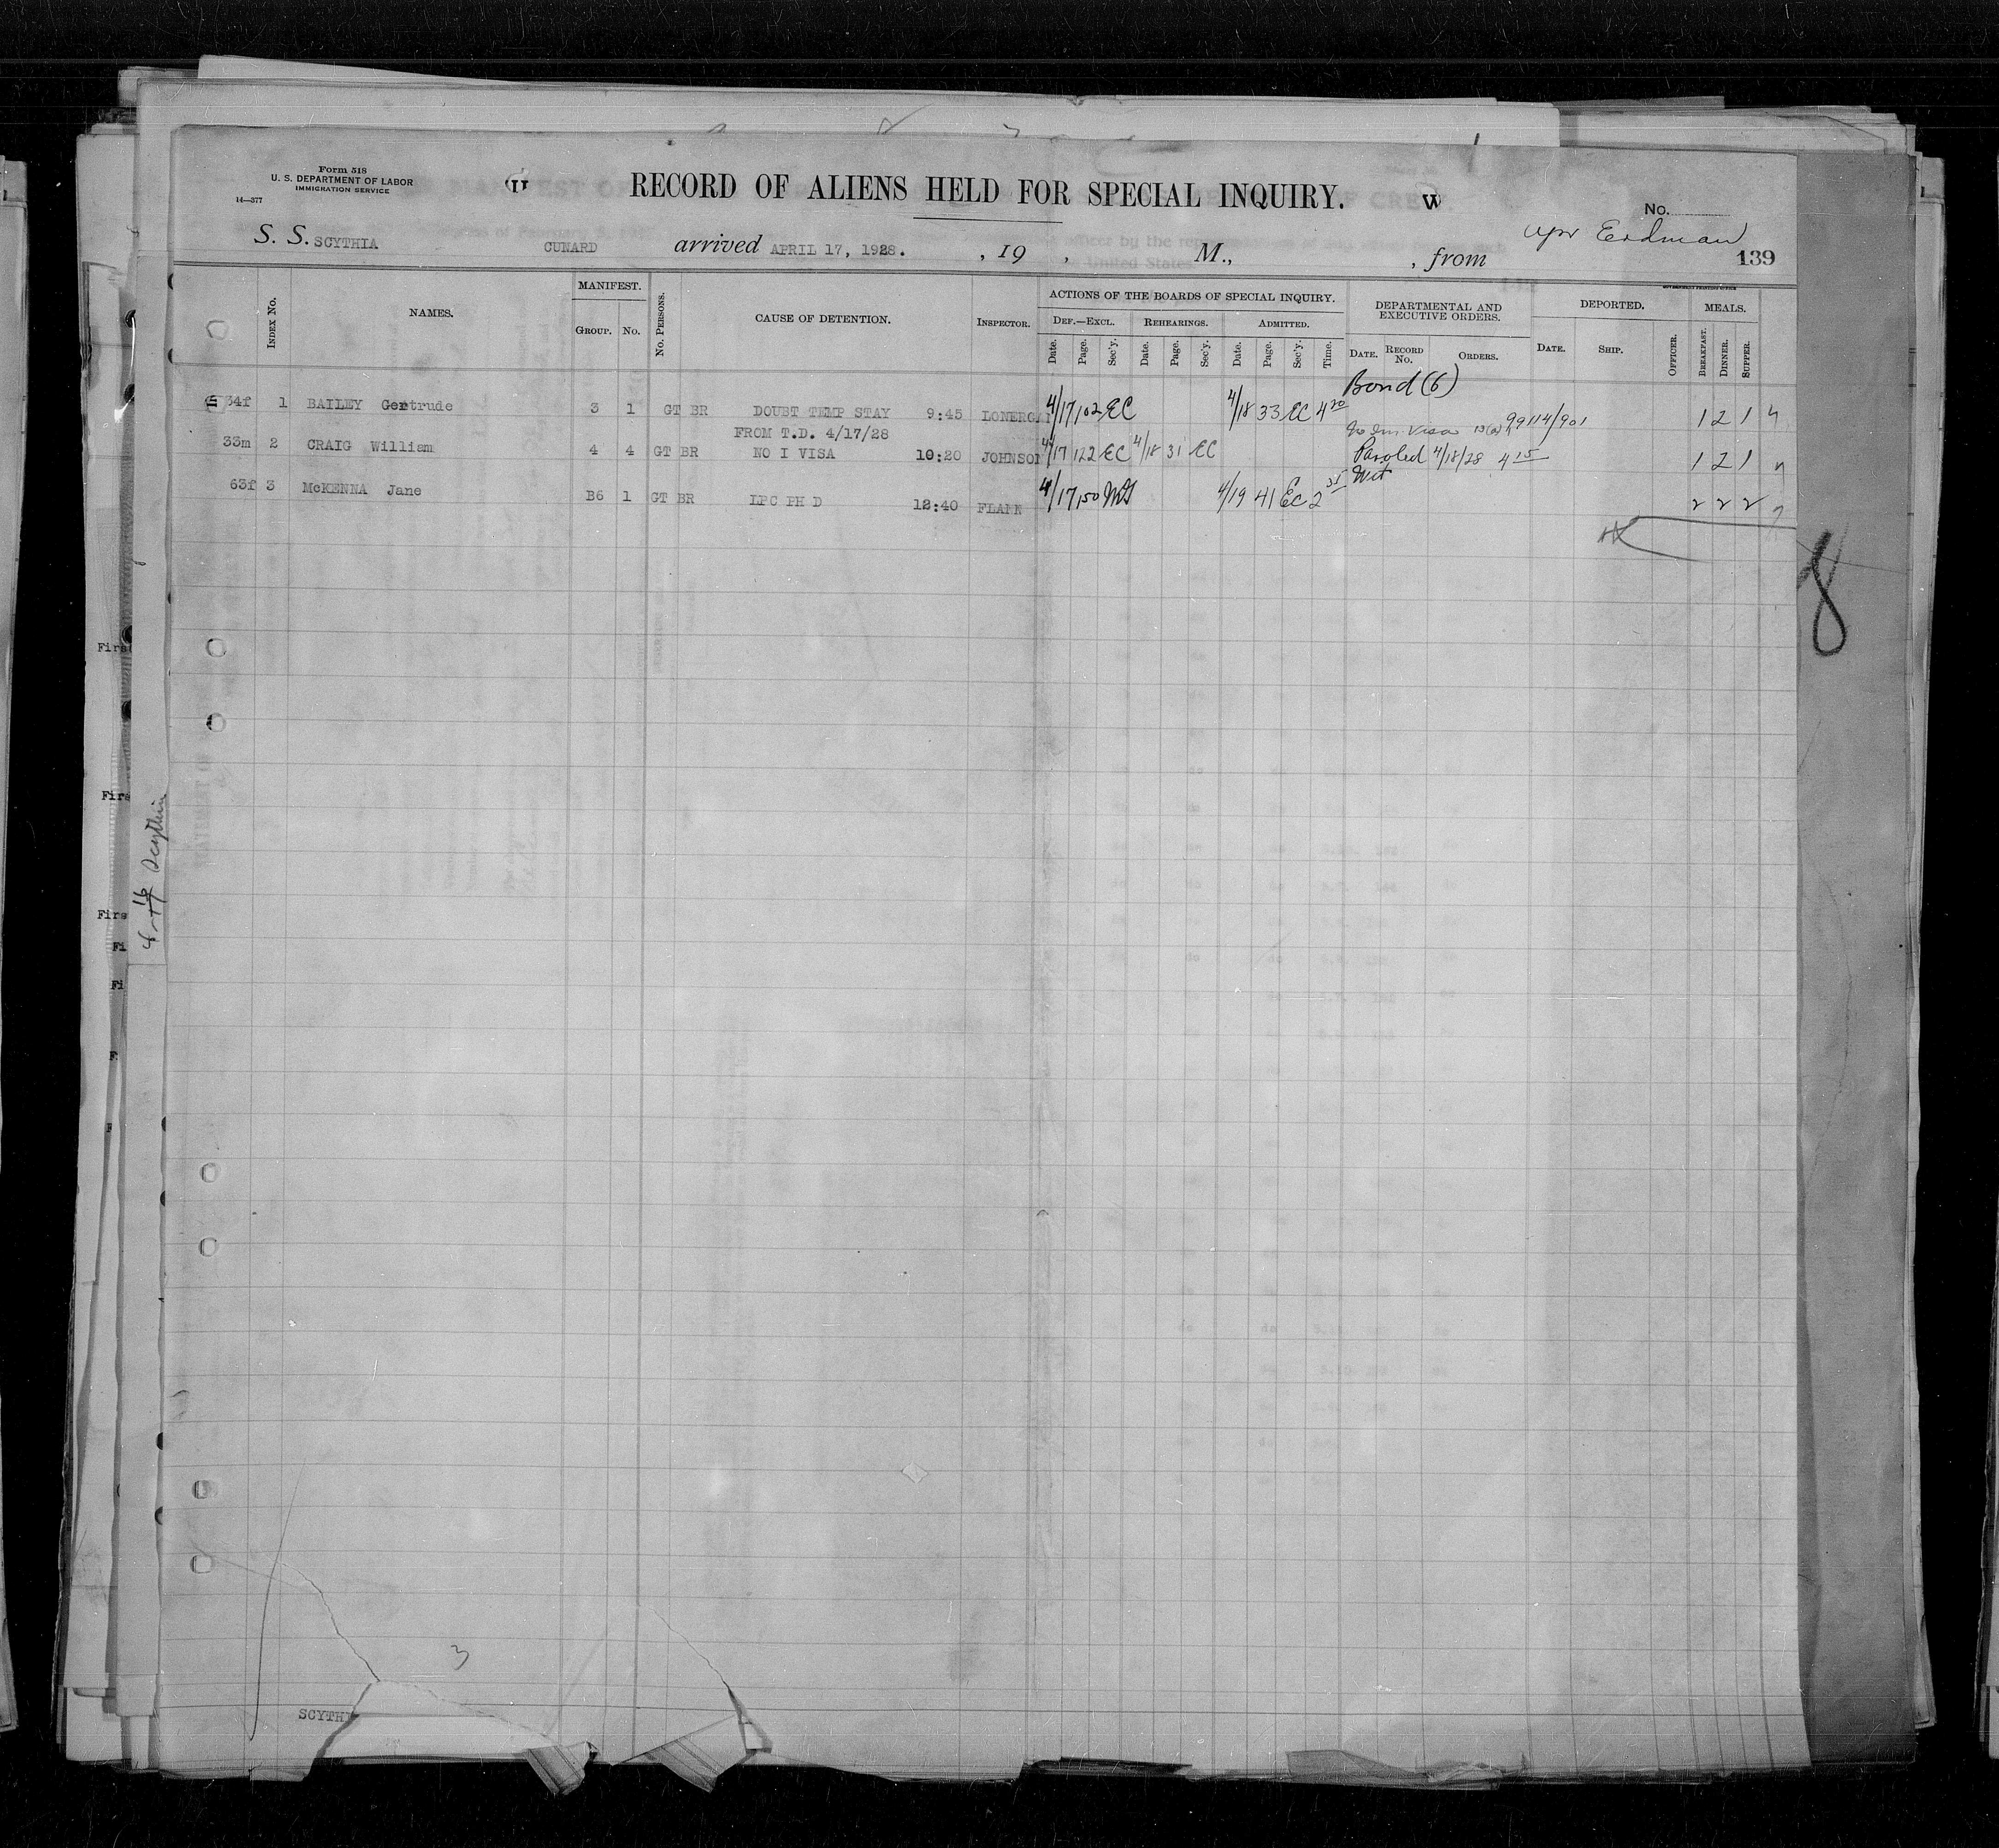 Form 518
U. S. DEPARTMENT OF LABOR
IMMIGRATION SERVICE
14—377
U
RECORD OF ALIENS HELD FOR SPECIAL INQUIRY.
W
No.
S. S. SCYTHIA CUNARD arrived APRIL 17, 1928. , 19 , M., , from Erdman 139
INDEX No. NAMES. MANIFEST. GROUP. No. No. PERSONS. CAUSE OF DETENTION. INSPECTOR.
ACTIONS OF THE BOARDS OF SPECIAL INQUIRY.
DEF.—EXCL. REHEARINGS. ADMITTED.
Date. Page. Sec'y. Date. Page. Sec'y. Date. Page. Sec'y. Time.
DEPARTMENTAL AND EXECUTIVE ORDERS.
DATE. RECORD No. ORDERS.
DEPORTED.
DATE. SHIP. OFFICER.
MEALS.
BREAKFAST. DINNER. SUPPER.
Bond (6)
34f 1 BAILEY Gertrude 3 1 GT BR DOUBT TEMP STAY 9:45 LONERGAN 4/17 102 EC 4/18 33 EC 4 20 99114/901 1 2 1
FROM T.D. 4/17/28
33m 2 CRAIG William 4 4 GT BR NO I VISA 10:20 JOHNSON 4/17 122 EC 4/18 31 EC Paroled 4/18/28 4 15 1 2 1
63f 3 McKENNA Jane B6 1 GT BR LPC PH D 12:40 FLANN 4/17 150 4/19 41 EC 2 2 2 2
8
Firs
Firs
Firs
Fi
Fi
F
Scythia
3
SCYTHI